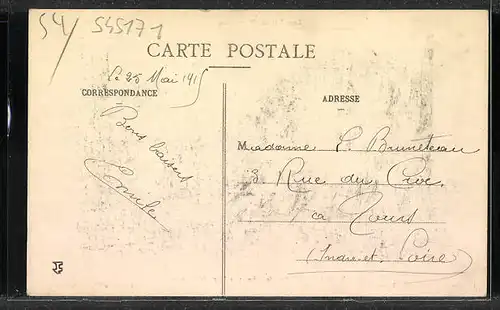 54/ 545171
CARTE POSTALE
Le 25 Mai 1915
CORRESPONDANCE
ADRESSE
Bons baisers
Emile
Madame E. Bruneteau
3. Rue du
à Tours
(Indre et Loire)